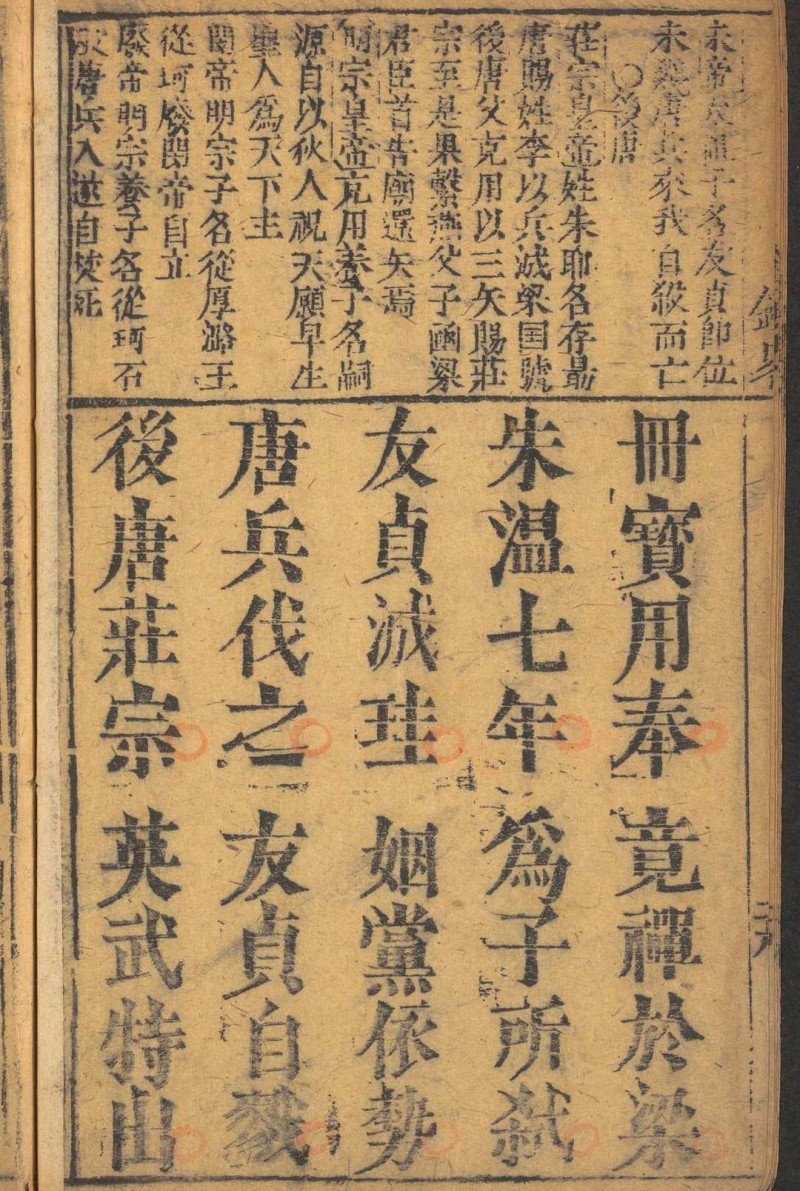 末帝友温子名友貞即位
未幾唐兵來我自殺而亡
○後唐
莊宗皇帝姓朱耶名存勗
唐賜姓李以兵滅梁国號
後唐父克用以三矢賜莊
宗至是果繫燕父子函梁
君臣首告廟還矢焉
明宗皇帝克用養子名嗣
源自以狄人祝天願早生
聖人為天下主
閔帝明宗子名從厚潞王
從珂廢閔帝自立
廢帝明宗養子名從珂石
唐兵入遂自焚死
冊寶用奉 竟禪於梁
朱温七年 為子所弒
友貞滅珪 姻黨依勢
唐兵伐之 友貞自戮
後唐莊宗 英武特出